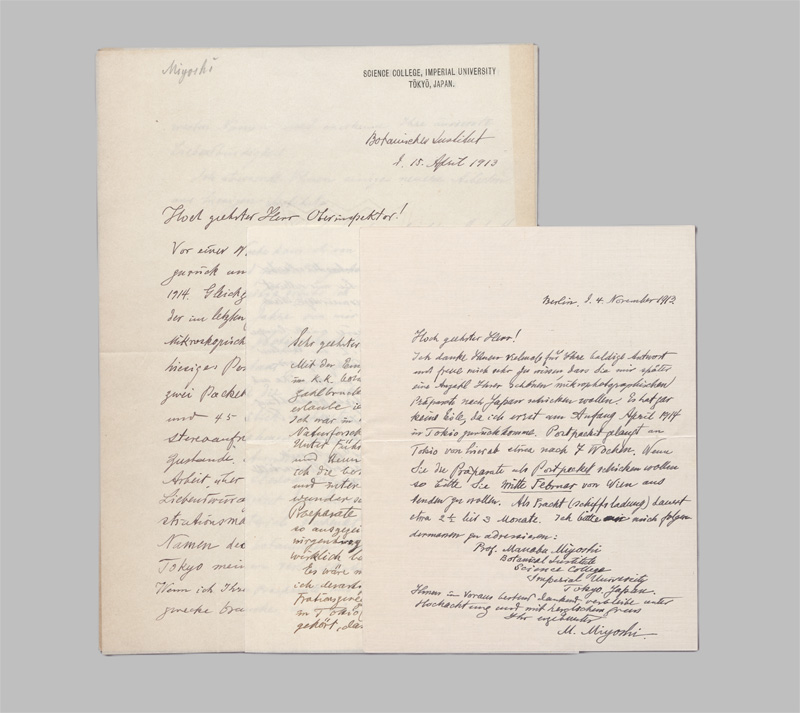 Miyoshi
SCIENCE COLLEGE, IMPERIAL UNIVERSITY
TŌKYŌ, JAPAN.
Botanisches Institut
d. 15. April 1913
Hoch geehrter Herr Oberinspektor!
Vor einer W
zurück un
1914. Gleichz
der im letzten
Mikroskopisch
hiesiges Po
zwei Packet
und 45
stereoaufn
Zustande.
Arbeit über
Liebenswür
strationsma
Namen des
Tokyo mein
Wenn ich Ihre
zwecke brau
Sehr geehrter
Mit der Em
im k.k. bota
zahlbruck
erlaube i
Ich war in
Naturforsch
Unter Führ
und Herrn
ich die be
und unter
wunder s
Praeparate
so ausgezei
nirgendswo
wirklich be
Es wäre m
ich derart
trationszwe
in Tokio
gehört, da
Berlin, d. 4. November 1913
Hoch geehrter Herr!
Ich danke Ihnen vielmals für Ihre baldige Antwort
und freue mich sehr zu wissen dass Sie mir später
eine Anzahl Ihrer schönen mikrophotographischen
Präparate nach Japan schicken wollen. Es hat gar
keine Eile, da ich erst am Anfang April 1914
in Tokio zurückkomme. Postpacket gelangt an
Tokio von hier ab etwa nach 7 Wochen. Wenn
Sie die Präparate als Postpacket schicken wollen
so bitte Sie Mitte Februar von Wien aus
senden zu wollen. Als Fracht (schiffsladung) dauert
etwa 2½ bis 3 Monate. Ich bitte mich folgen
dermassen zu adressieren:
Prof. Manabu Miyoshi
Botanical Institute
Science College
Imperial University
Tokyo, Japan.
Ihnen im Voraus bestens dankend, verbleibe unter
Hochachtung und mit herzlichem Gruss
Ihr ergebenster
M. Miyoshi